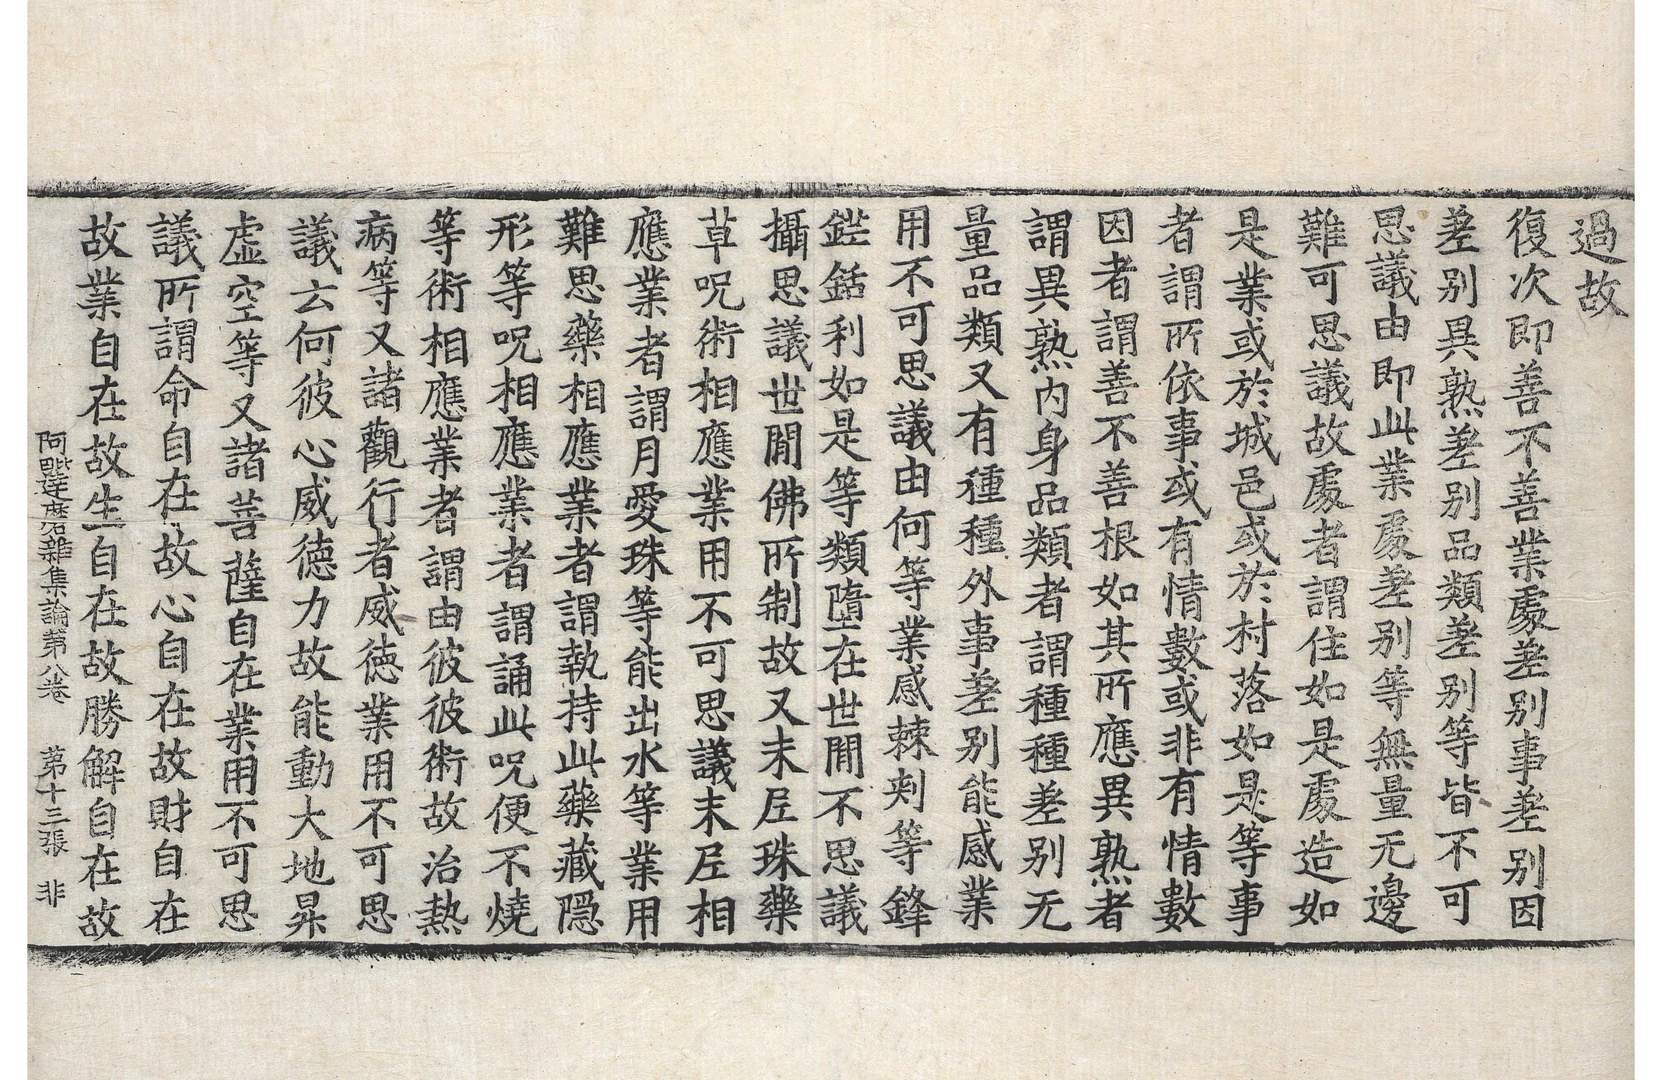 過故
復次即善不善業處差別事差別因
差別異熟差別品類差別等皆不可
思議由即此業處差別等無量无邊
難可思議故處者謂住如是處造如
是業或於城邑或於村落如是等事
者謂所依事或有情數或非有情數
因者謂善不善根如其所應異熟者
謂異熟內身品類者謂種種差別无
量品類又有種種外事差別能感業
用不可思議由何等業感棘刾等鋒
鋩銛利如是等類墮在世閒不思議
攝思議世閒佛所制故又末尼珠藥
草呪術相應業用不可思議末尼相
應業者謂月愛珠等能出水等業用
難思藥相應業者謂執持此藥藏隱
形等呪相應業者謂誦此呪便不燒
等術相應業者謂由彼彼術故治熱
病等又諸觀行者威徳業用不可思
議云何彼心威德力故能動大地昇
虛空等又諸菩薩自在業用不可思
議所謂命自在故心自在故財自在
故業自在故生自在故勝解自在故
阿毗達磨雜集論第八卷 第十三張 非